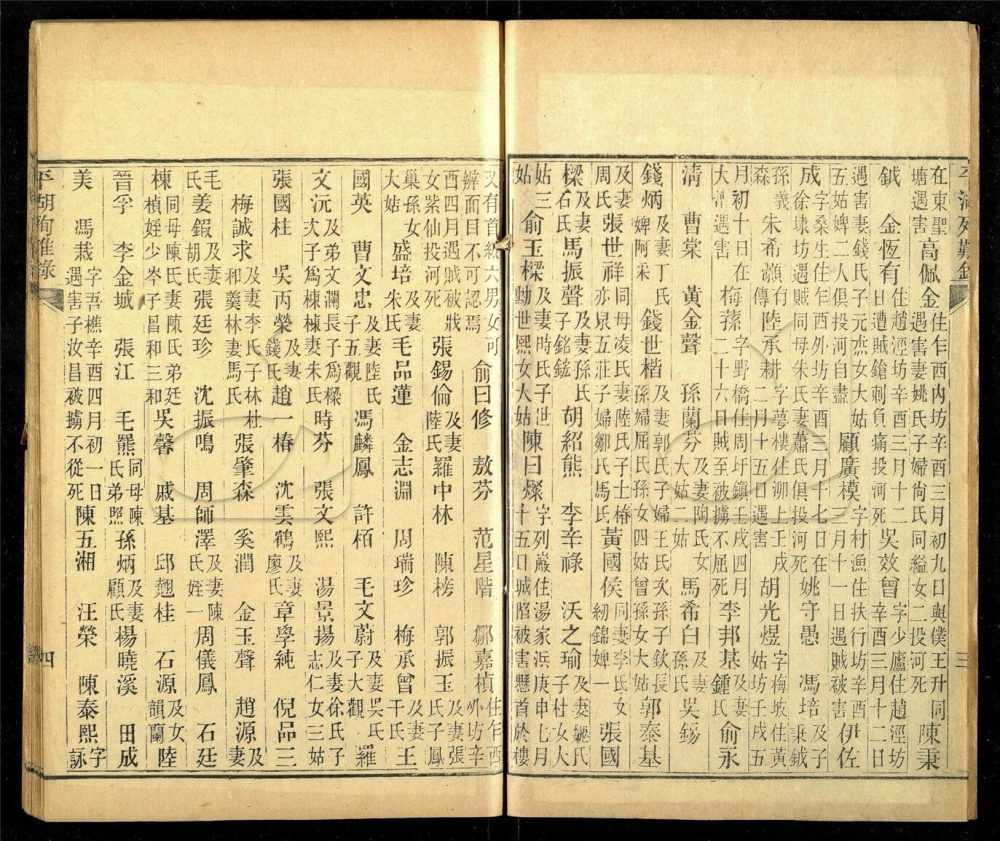 平湖殉難錄
三
在東聖塘遇害 高佩金 住乍西內坊辛酉三月初九日與僕王升同遇害妻姚氏子婦尚氏同縊女二投河死 陳秉
鉞 金恆有 住趙涇坊辛酉三月十二日遭賊鎗刺負痛投河死 吳效曾 字少廬住趙涇坊辛酉三月十二日
遇害妻錢氏子元烋女大姑五姑婢二人俱投河自盡 顧廣模 字村漁住扶行坊辛酉三月十一日遇賊被害 伊佐
成 字桑生住乍西外坊辛酉三月十七日在徐埭坊遇賊同母朱氏妻蕭氏俱投河死 姚守愚 馮培 及子秉鉞
孫義森 朱希灝 有傳 陸承耕 字夢樓住泖上壬戌二月十五日遇害 胡光煜 字梅坡住黃姑坊壬戌五
月初十日在大漕遇害 梅蓀 字野橋住周圩鎮壬戌四月二十六日賊至被擄不屈死 李邦基 及妻鍾氏 俞永
清 曹棠 黃金聲 孫蘭芬 及妻陶氏女大姑二姑 馬希白 及妻孫氏 吳錫
錢炳 及妻丁氏婢阿采 錢世楷 及妻郭氏子婦王氏次孫子欽長孫婦屈氏孫女四姑曾孫女大姑 郭泰基
及妻周氏 張世祥 同母凌氏妻陸氏子士椿亦泉五莊子婦鄒氏馬氏 黃國侯 同妻李氏女紉錦婢一 張國
樑 及妻石氏 馬振聲 及妻氏子銘 胡紹熊 李辛祿 沃之瑜 及妻氏子杜女大
姑三姑 俞玉樑 及妻時氏子世勳世熙女大姑 陳曰燦 字列巖住湯家浜庚申七月十五口城陷被害懸首於樓
又有首級六男女可辨面目不可認焉 俞曰修 敖芬 范星階 鄒嘉楨 住乍西外坊辛
酉四月遇賊被戕女紫仙投河死 張錫倫 及妻陸氏 羅中林 陳榜 郭振玉 及妻張氏子鳳
巢孫女大姑 盛培 及妻朱氏 毛品蓮 金志淵 周瑞珍 梅承曾 及妻干氏 王
國英 曹文忠 及妻陸氏子五觀 馮麟鳳 許栢 毛文蔚 及妻吳氏子大觀 羅
文沅 及弟文瀾長子為樑次子為棟棟妻朱氏 時芬 張文熙 湯景揚 及妻徐氏子志仁女三姑
張國柱 吳丙榮 及妻錢氏 趙一椿 沈雲鶴 及妻廖氏 章學純 倪品三
梅誠求 及妻李氏子林和義林妻馬氏 杜張肇森 奚潤 金玉聲 趙源 及妻
毛氏 姜鍜 及妻胡氏 張廷珍 沈振鳴 周師澤 及妻陳氏姪一 周儀鳳 石廷
棟 同母陳氏妻陳氏弟廷楨姪少岑子昌和三和 吳馨 戚基 邱翹桂 石源 及女韻蘭 陸
晉孚 李金城 張江 毛羆 同母陳氏弟熙 孫炳 及妻顧氏 楊曉溪 田成
美 馮栽 字吾樵辛酉四月初一日遇害子汝昌被擄不從死 陳五湘 汪榮 陳泰熙 字詠
平湖殉難錄
四